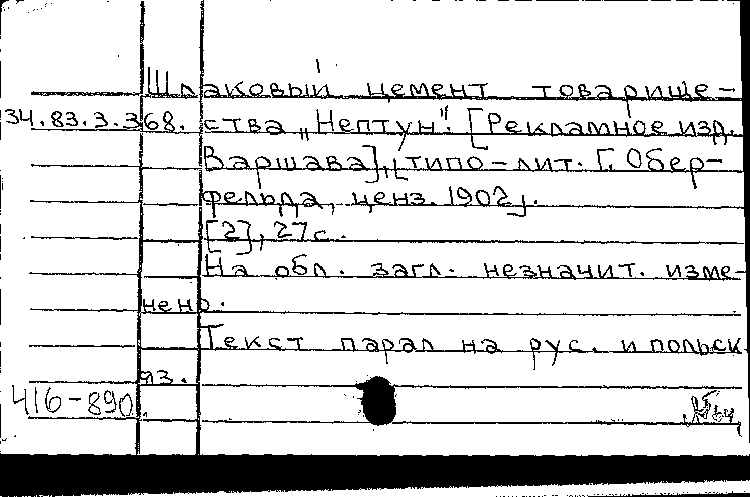 Шлаковый цемент товарище-
34.83.3.368. ства „Нептун". [Рекламное изд.
Варшава], [типо-лит. Г. Обер-
фельда, ценз. 1902].
[2], 27 с.
На обл. загл. незначит. изме-
нено.
Текст парал на рус. и польск
яз.
416-890